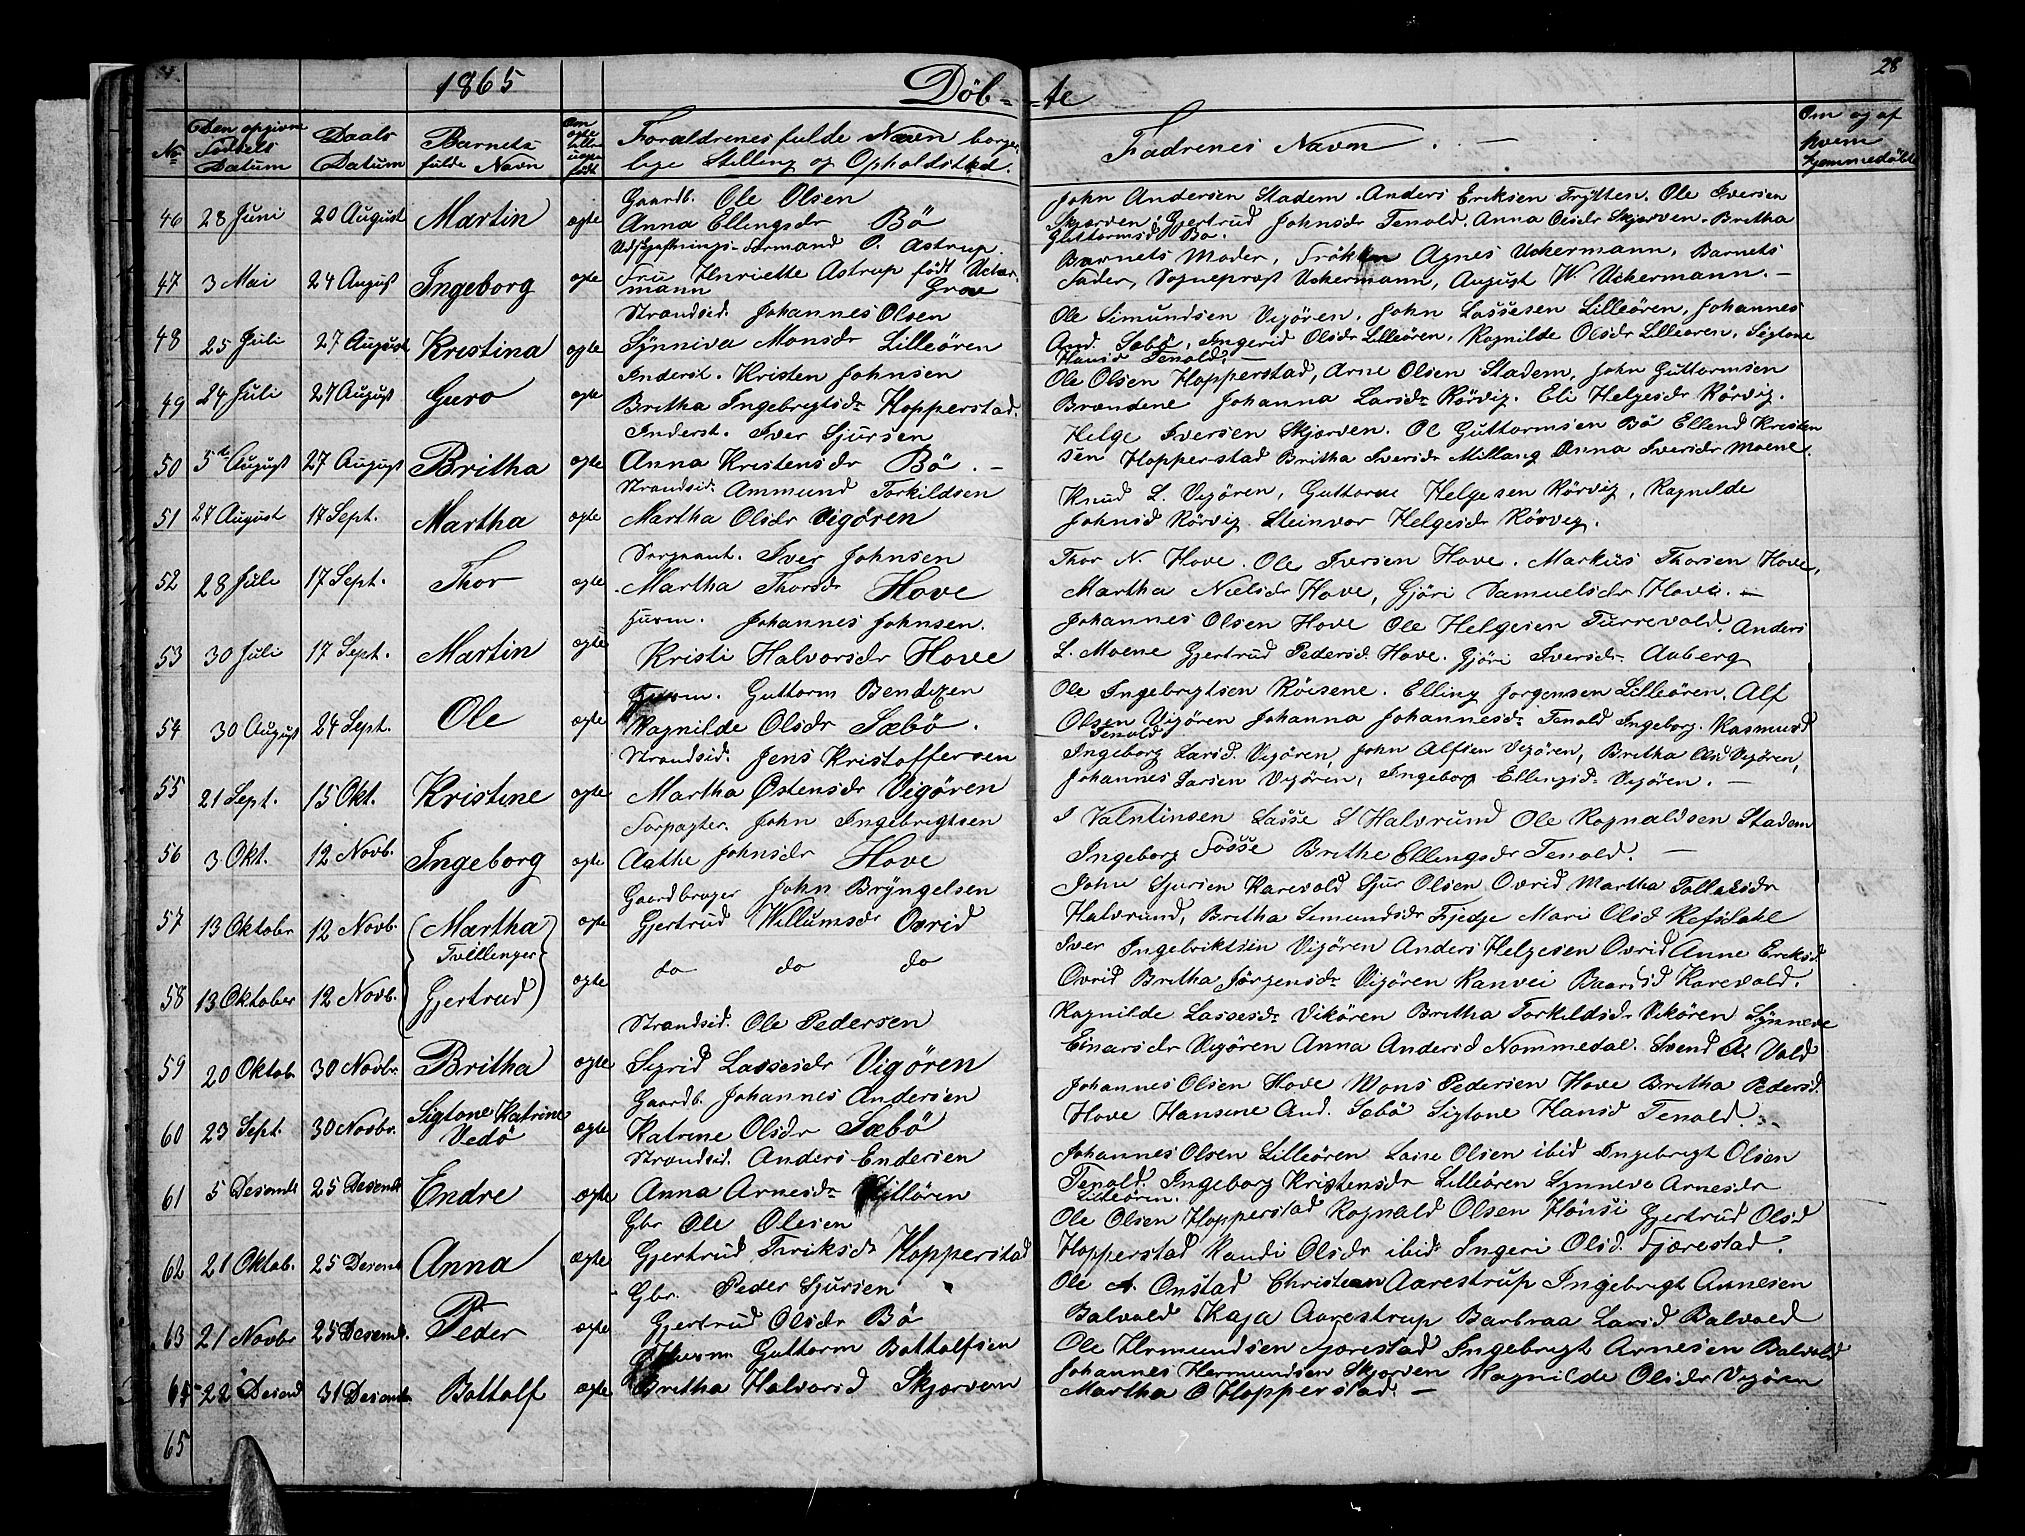 28
1865 Döb-te
No Den opgivne Födsels Datum Daabs Datum Barnets fulde Navn Om ægte eller uægte födt Forældrenes fulde Navn borgerlige Stilling og Opholdsted. Fadrenes Navn. Om og af hvem hjemmedöbt
46 28 Juni 20 August Martin ægte Gaardb. Ole Olsen
Anna Ellingsdr Bö
John Andersen Stadem. Anders Eriksen Frÿtten. Ole Iversen
Skjærven. Gjertrud Johnsdr Tenold. Anna Olsdr Skjærven. Britha
Guttormsd Bö.
47 3 Mai 24 August Ingeborg ægte Udskyftnings-Formand O. Astrup
Fru Henriette Astrup födt Ucker
mann Grov
Barnets Moder, Frökken Agnes Uckermann, Barnets
Fader, Sogneprest Uckermann, August W. Uckermann.
48 25 Juli 27 August Kristina ægte Strandsid. Johannes Olsen
Synniva Monsdr Lilleören
Ole Simundsen Vigören. John Lassesen Lilleören, Johannes
And. Sæbö, Ingerid Olsdr Lilleören. Ragnilde Olsdr Lilleören. Sigtone
Hansd Tenold.
49 24 Juli 27 August Guro ægte Inderst. Kristen Johnsen
Britha Ingebrigtsdr Hopperstad.
Ole Olsen Hopperstad, Arne Olsen Stadem, John Guttormsen
Brændene Johanna Larsdr Rörvig. Eli Helgesdr Rörvig.
50 5te August 27 August Britha ægte Inderst. Iver Sjursen
Anna Kristensdr Bö.
Helge Iversen Skjærven. Ol Guttormsen Bö Ellend Kristen
sen Hopperstad Britha Iversdr Millang Anna Iversdr Moene.
51 27 August 17 Sept. Martha ægte Strandsid. Ammund Torkildsen
Martha Olsdr Vigören
Knud L. Vigören, Guttorm Helgesen Rörvig, Ragnilde
Johnsd Rörvig. Steinvor Helgesdr Rörvig.
52 28 Juli 17 Sept. Thor ægte Sergeant. Iver Johnsen
Martha Thorsdr Hove
Thor N. Hove. Ole Iversen Hove. Markus Thorsen Hove,
Martha Nielsdr Hove, Gjöri Samuelsdr Hove.
53 30 Juli 17 Sept. Martin ægte Huusm. Johannes Johnsen.
Kristi Halvorsdr Hove
Johannes Olsen Hove Ole Helgesen Turrevold. Anders
L. Moene Gjertrud Pedersd. Hove. Gjöri Iversdr Aaberg
54 30 August 24 Sept. Ole ægte Huusm. Guttorm Bendixen
Ragnilde Olsdr Sæbö.
Ole Ingebrigtsen Röisene. Elling Jorgensen Lilleören, Alf
Olsen Vigören Johanna Johannesdr Tenold Ingeborg Rasmusd
Tenold
55 21 Sept. 15 Okt. Kristine ægte Strandsid. Jens Kristoffersen
Martha Østensdr Vigören
Ingeborg Larsd. Vigören, John Alfsen Vigören, Britha And Vigören,
Johannes Larsen Vigören, Ingeborg Ellingsd. Vigören.
56 3 Okt. 12 Novb. Ingeborg ægte Forpagter. John Ingebrigtsen
Aathe Johnsdr Hove
I Valntinsen Lasse S Halvrund Ole Rognaldsen Stadem
Ingeborg Fosse Brithe Ellingsdr Tenold.
57 13 Oktober 12 Novb. Martha ægte Gaardbruger John Bryngelsen
Tvillinger
Gjertrud Willumsdr Ovrid
John Sjursen Karevold Sjur Olsen Ovrid Martha Tollaksdr
Halvrund, Britha Simundsdr Fjedge Mari Olsd Refsdahl
58 13 Oktober 12 Novb. Gjertrud ægte do do do
Iver Ingebriktsen Vigören Anders Helgesen Ovrid Anne Eriksd
Ovrid Britha Jörgensdr Vigören Ranvei Baardsd Karevold.
59 20 Oktob. 30 Novbr. Britha ægte Strandsid. Ole Pedersen
Sigrid Lassesdr Vigören
Ragnilde Lassesdr Vikören Britha Torkildsdr Vikören Synneve
Einarsdr Vigören Anna Andersd Nommedal. Svend A. Vold
60 23 Sept. 30 Novbr. Sigtone Katrine
Vedö ægte Gaardb. Johannes Andersen
Katrine Olsdr Sæbö
Johannes Olsen Hove Mons Pedersen Hove Britha Pedersd.
Hove Hansine And. Sæbö Sigtone Hansd Tenold.
61 5 Desembr 25 Desembr Endre ægte Strandsid. Anders Endersen
Anna Arnesdr Lilleören
Johannes Olsen Lilleören Lasse Olsen ibid Ingebrigt Olsen
Tenold. Ingeborg Kristensdr Lilleören Synneve Arnesdr
Lilleören.
62 21 Oktob. 25 Desemb Anna ægte Gbr Ole Olesen
Gjertrud Eriksdr Hopperstad
Ole Olsen Hopperstad Rognald Olsen Hönsi Gjertrud Olsd
Hopperstad Randi Olsdr ibid. Ingeri Olsd. Fjærestad.
63 21 Novbr 25 Desemb. Peder ægte Gbr. Peder Sjursen
Gjertrud Olsdr Bö
Ole A. Onstad Christian Aarestrup Ingebrigt Arnesen
Balvold Kaja Aarestrup Barbraa Larsd Balvold
64 22 Desemb 31 Desemb. Bottolf ægte Huusm Guttorm Bottolfsen
Britha Halvorsd Skjærven
Ole Hermundsen Fjærestad Ingebrigt Arnesen Balvold
Johannes Hermundsen Skjærven Ragnilde Olsdr Vigören
Martha O Hopperstad.
65